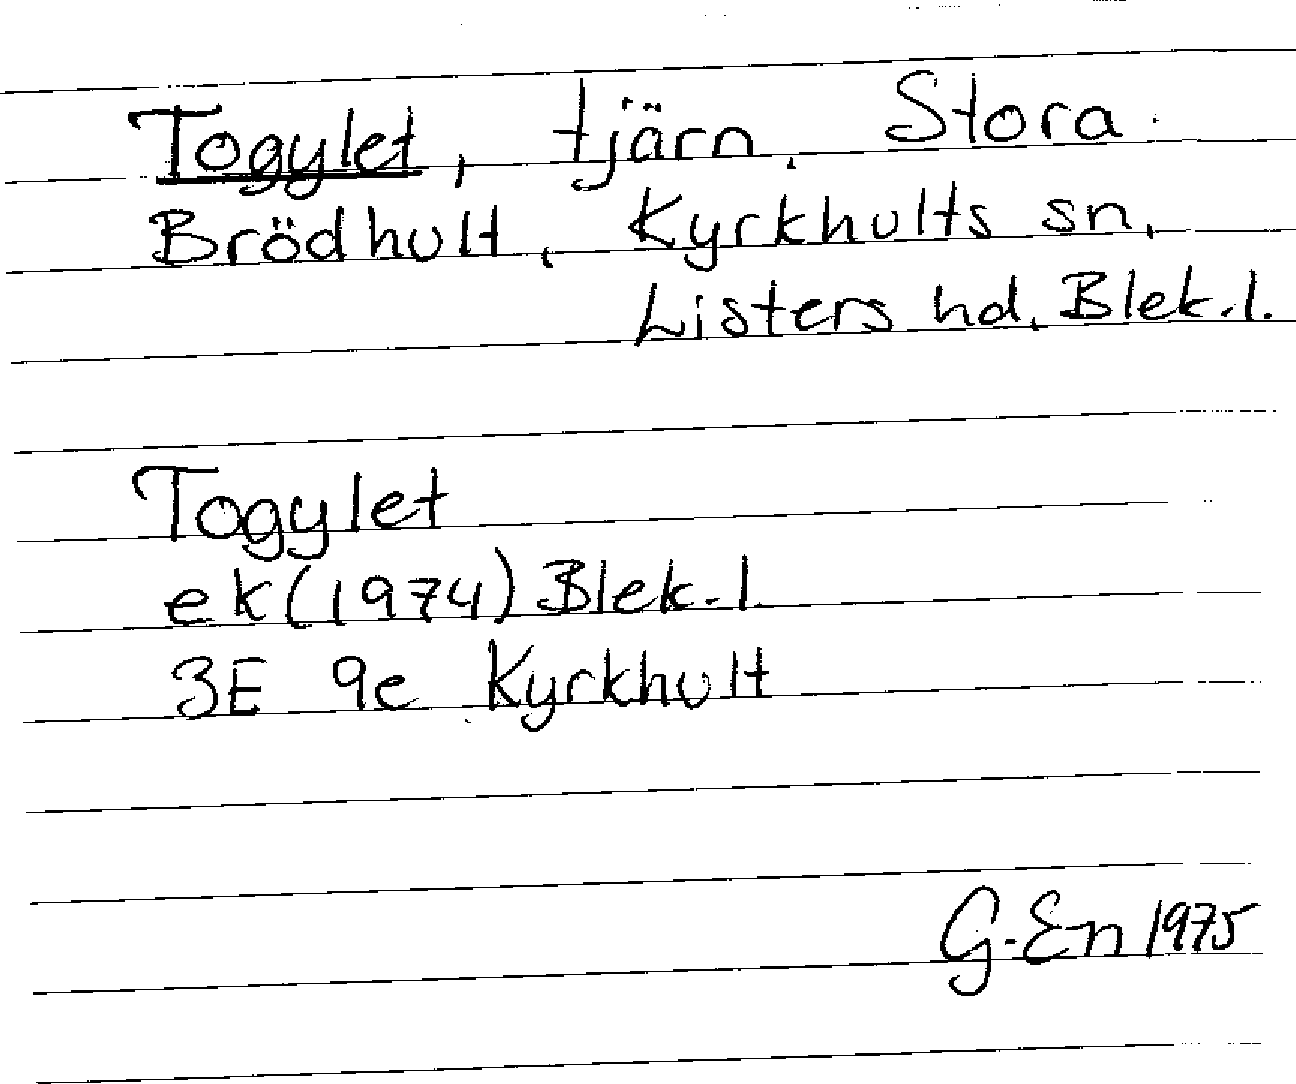 Togylet, tjärn. Stora
Brödhult, Kyrkhults sn,
Listers hd, Blek.l.
Togylet
ek (1974) Blek.l.
3E 9e Kyrkhult
G.En 1975